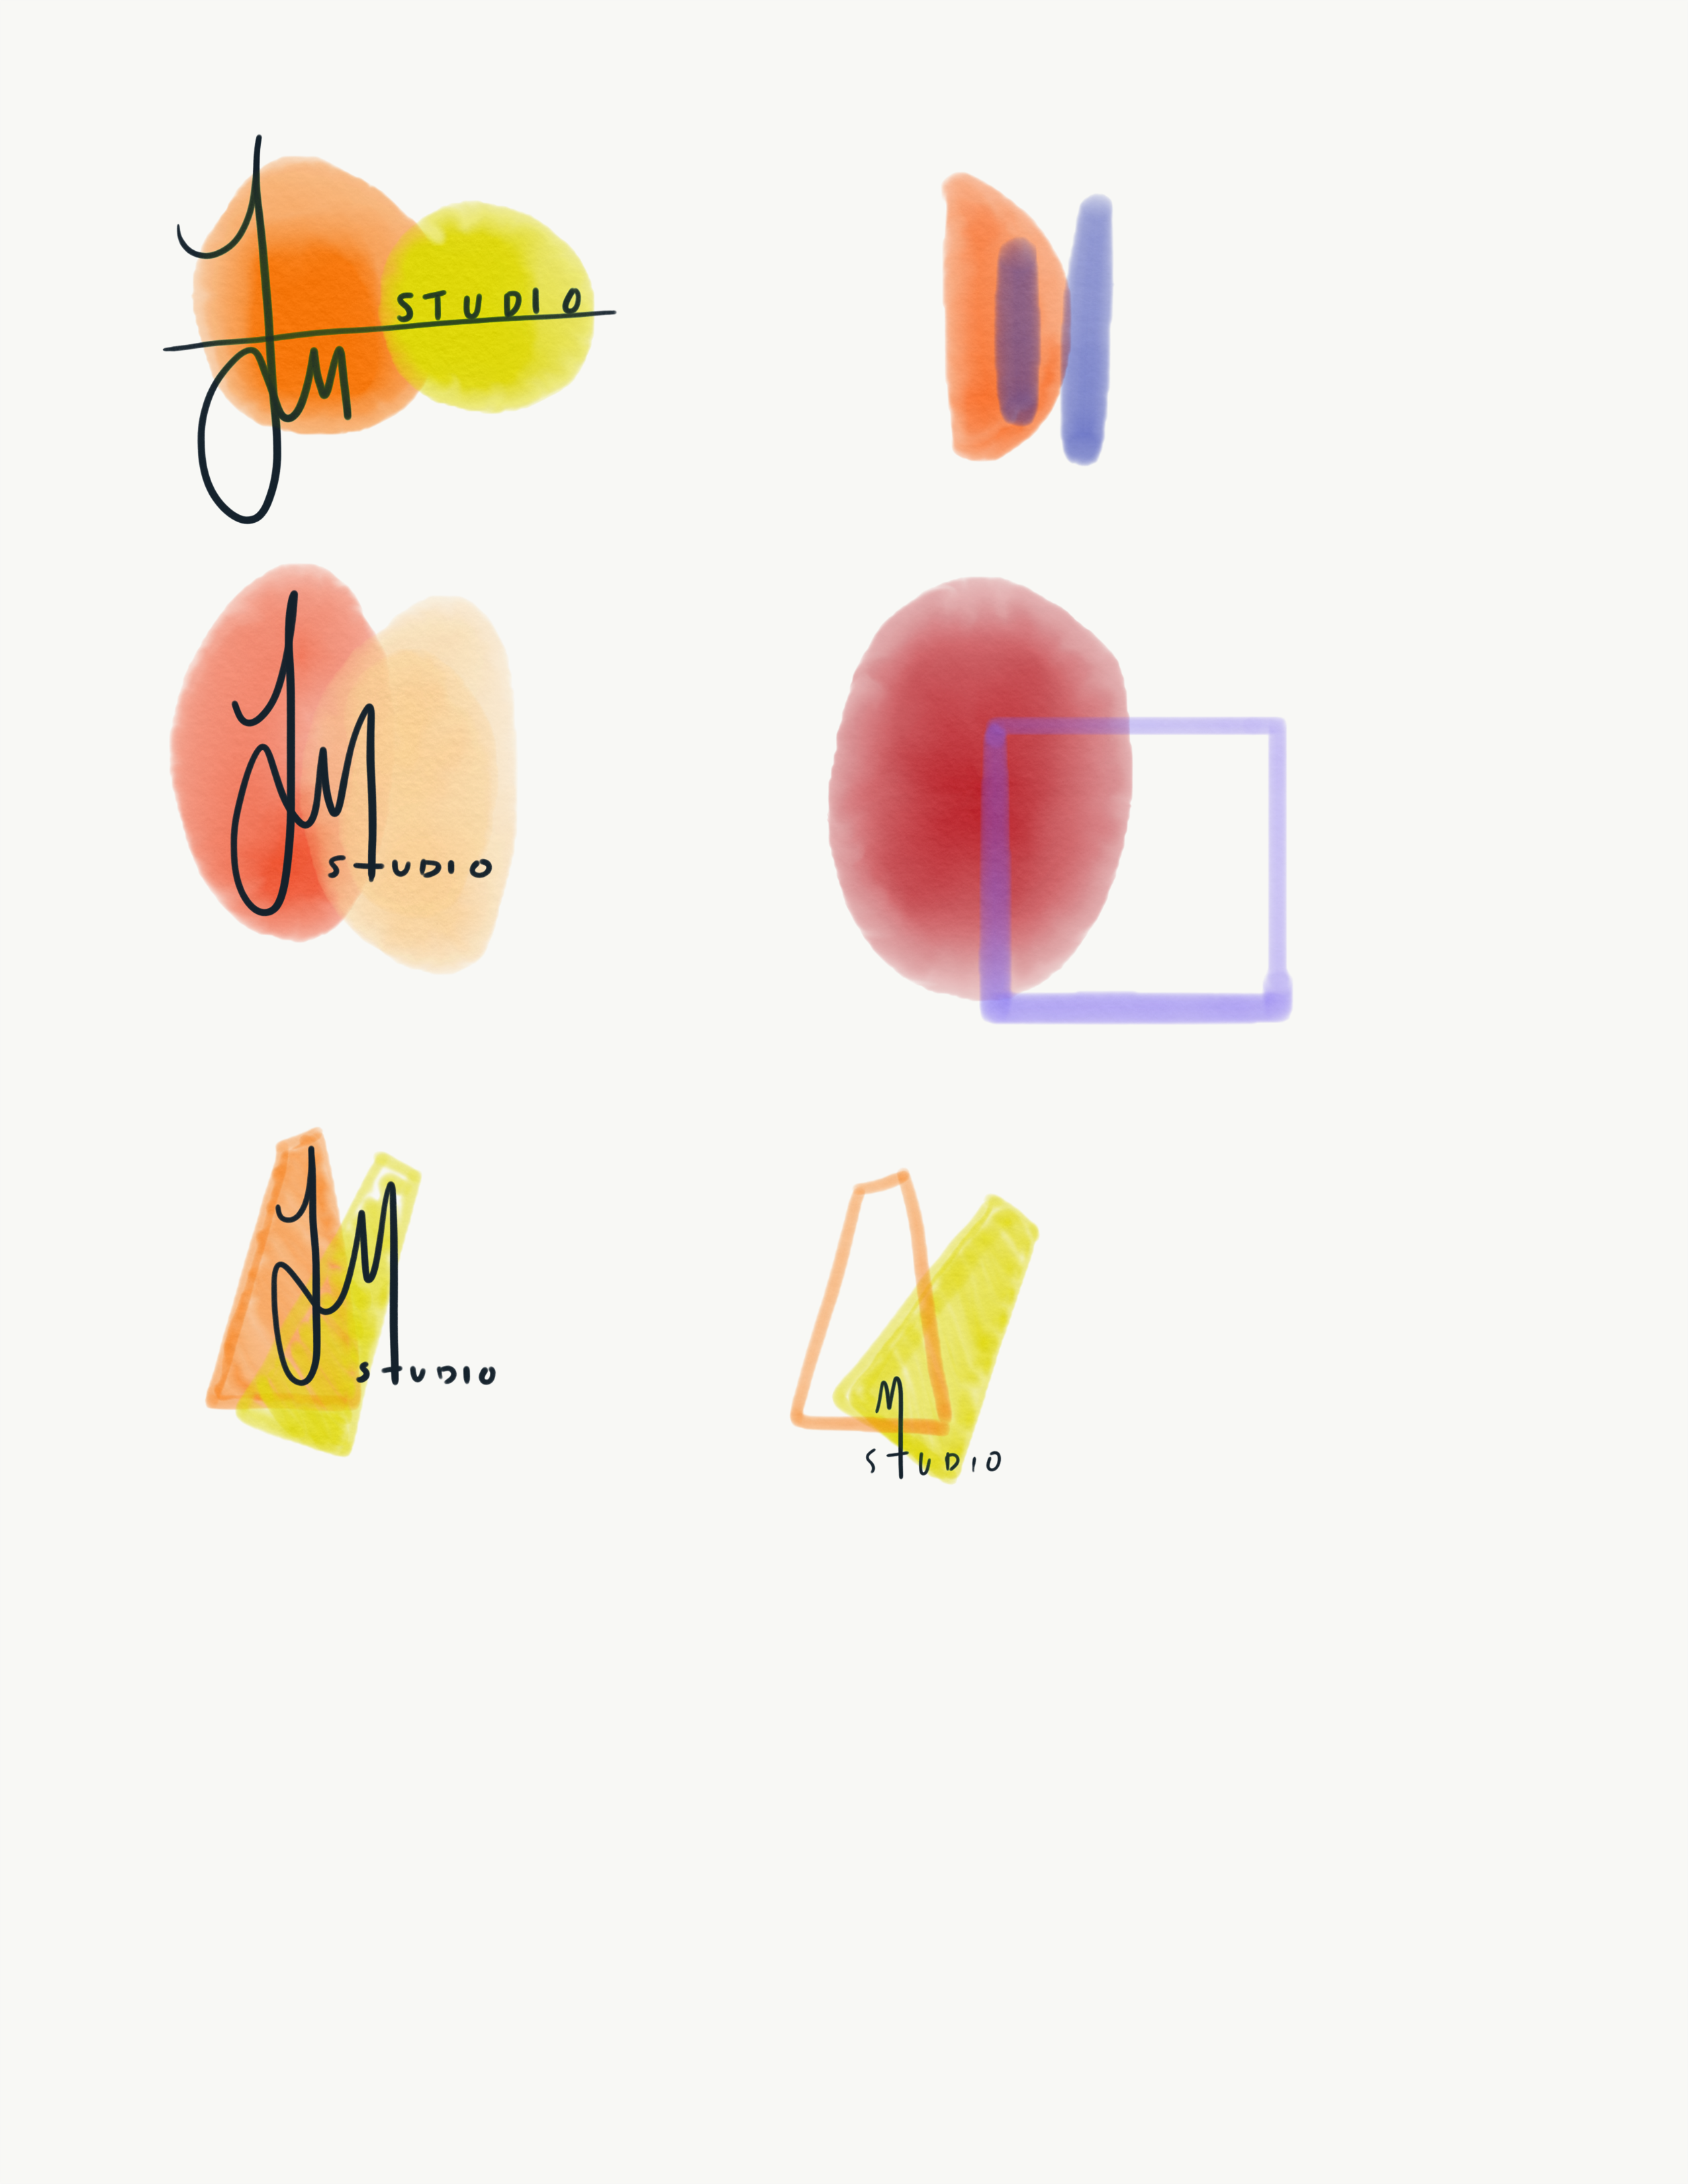 STUDIO
JM
JM
STUDIO
JM
STUDIO
M
STUDIO